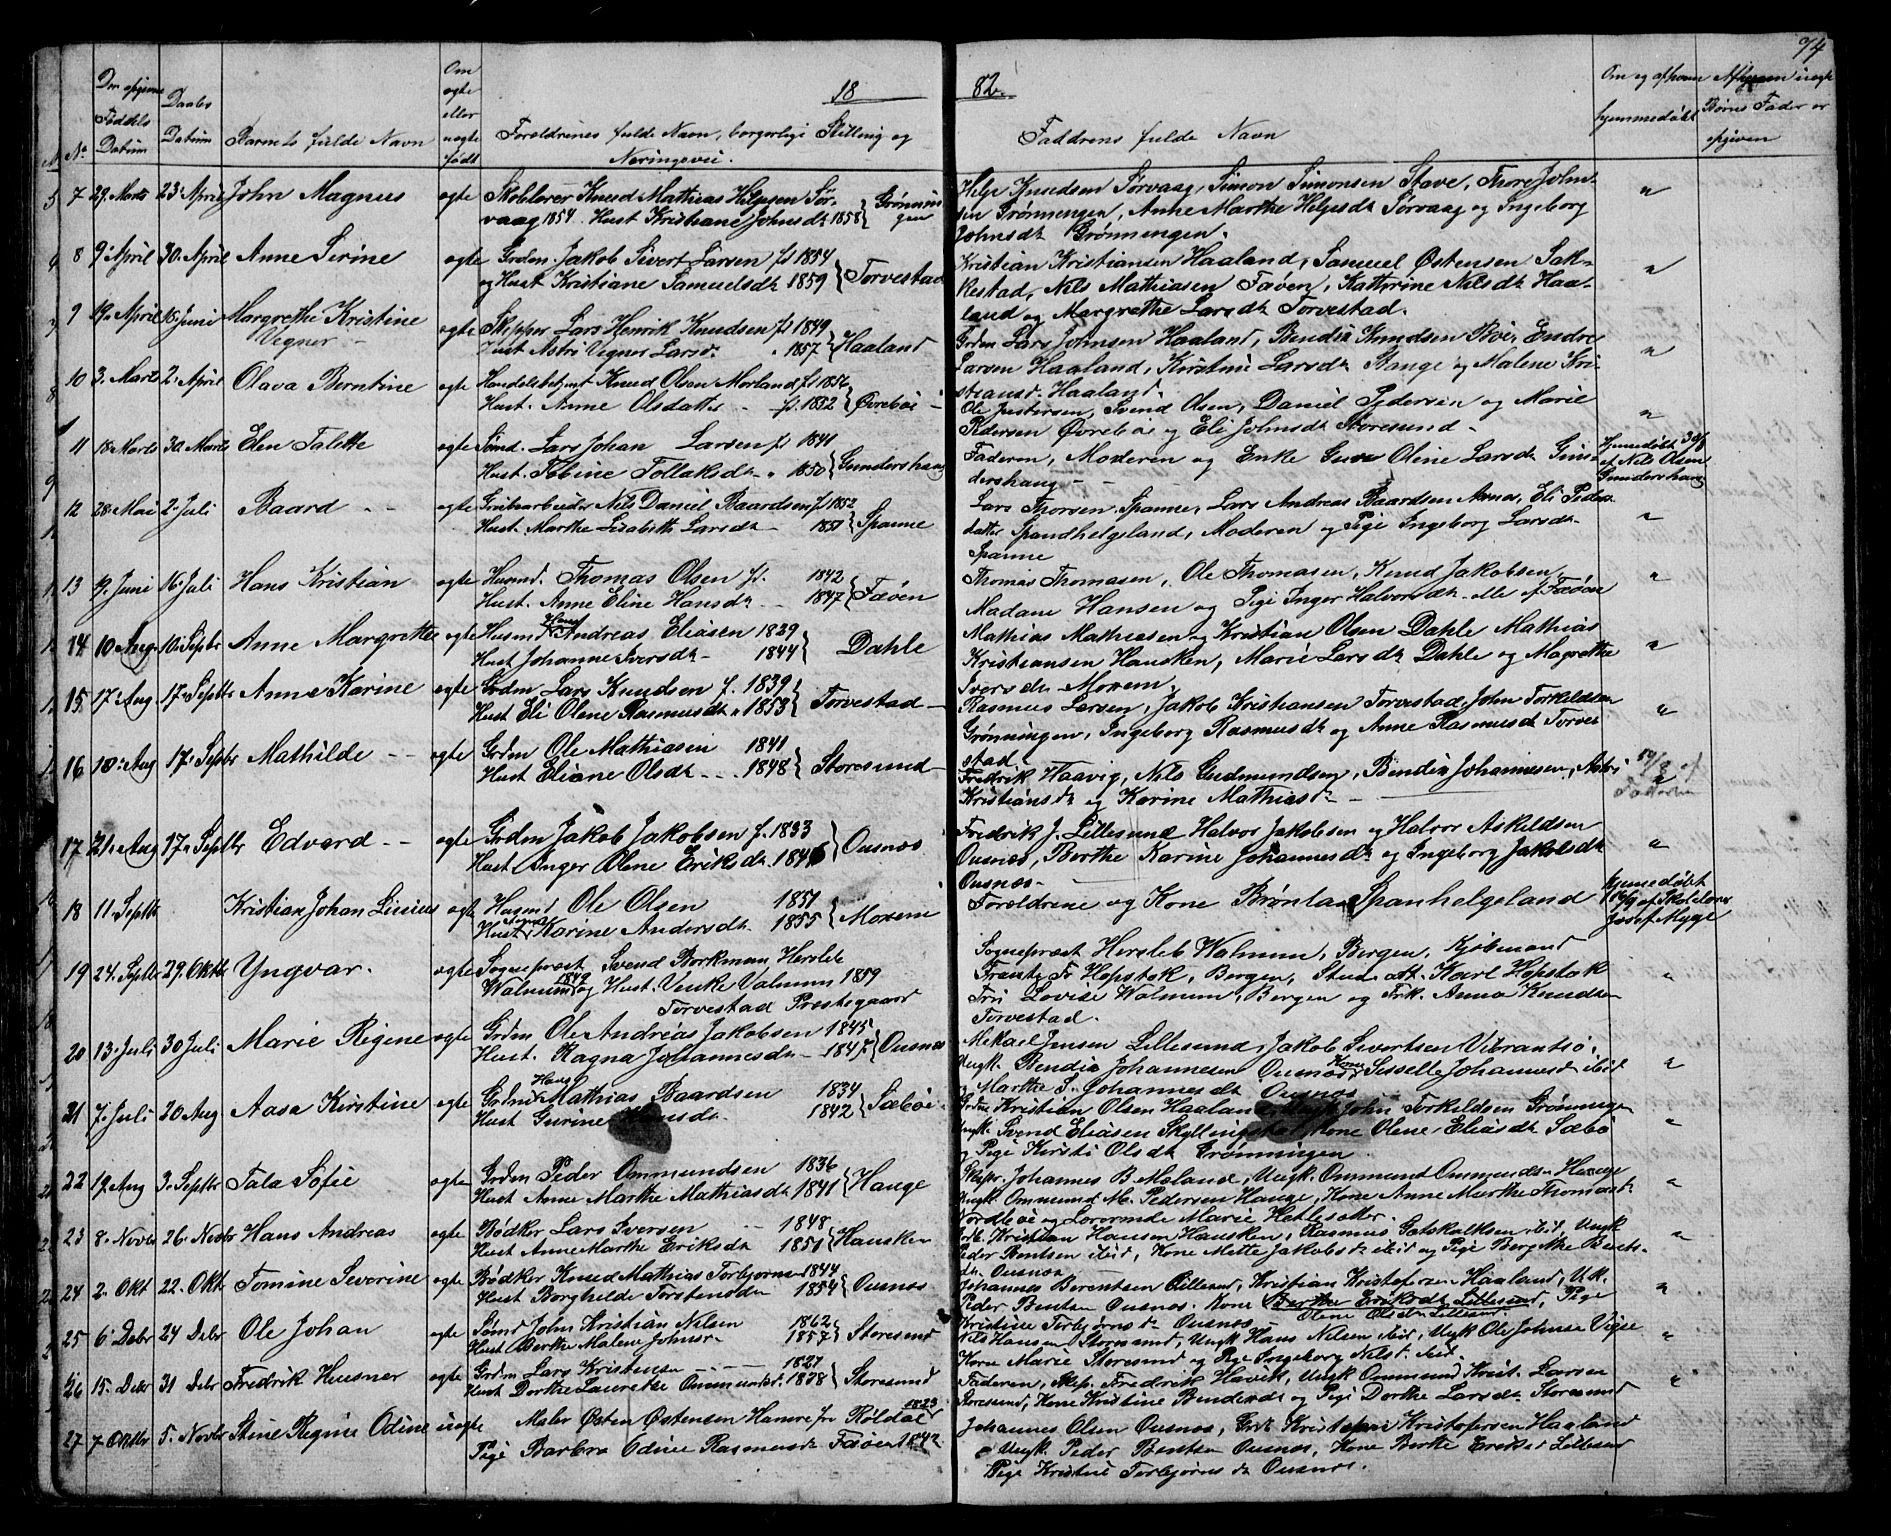 74
18 82.
No
Den opgivne Fødsels Datum
Daabs Datum
Barnets fulde Navn
Om ægte eller uægte født
Forældrenes fulde Navn, borgerlige Stilling og Næringsvei.
Faddrens fulde Navn
Om og af hvem hjemmedøbt
Børns Fader er opgiven
7 29. Marts 23. April John Magnus ægte Skolelærer Knud Mathias Helgesen Sør-
vaag 1854. Hust Kristiane Johnsdr 1858 } Grønnin-
gen
Helge Knudsen Sørvaag, Simon Simonsen Stave, Thore John-
sen Grønnengen, Anne Marthe Helgesdr Sørvaag og Ingeborg
Johnsdr Grønnengen.
8 9. April 30. April Anne Sirine ægte Grdm. Jakob Sivert Larsen f. 1854
og Hust Kristiane Samuelsdr 1859 } Torvestad
Kristian Kristiansen Haaland, Samuel Østensen Sak-
kestad, Nils Mathiasen Føven, Kathrine Nilsdr Haa-
land og Margrethe Larsdr Torvestad.
9 19. April 18. Juni Margrethe Kristine
Vegner
ægte Skipper Lars Henrik Knudsen f. 1849
Hust. Astri Vegner Larsdr " 1857 } Haaland
Grdm Lars Johnsen Haaland, Bendix Knudsen Bøe, Endre
Larsen Haaland, Kirstine Larsdr Stange og Malene Kri-
stiansd. Haaland.
10 3. Marts 2. April Olava Berntine ægte Handelsbetjent Knud Olsen Morland f. 1856
Hust. Anne Olsdatter - f. 1852 } Øvrebøe
Ole Justesen, Svend Olsen, Daniel Pedersen og Marie
Pedersen Øvrebøe og Eli Johnsdr Storesund -
11 18. Marts 30. Marts Elen Talette ægte Sømd. Lars Johan Larsen f. 1841
Hust. Tobine Tollaksdr " 1850 } Gundershaug
Faderen, Moderen og Enke Oline Larsdr Gun-
dershaug
Hjemmedøbt 30/3
af Nils Olsen
Gundershaug
12 28. Mai 2. Juli Baard ægte Grubearbeider Nils Daniel Baardsen f. 1852
Hust. Marthe Lisabeth Larsdr - 1851 } Spanne
Lars Thorsen Spanne, Lars Andreas Baardsen Aanes, Eli Peders-
datter Spandhelgeland, Moderen og Pige Ingeborg Larsdr
Spanne
13 9. Juni 16. Juli Hans Kristian ægte Husmd. Thomas Olsen f. 1842
Hust. Anne Eline Hansdr 1847 } Føven
Thomas Thomasen, Ole Thomasen, Knud Jakobsen,
Madane Hansen og Pige Inger Halvorsdr alle af Føøen
14 10. Aug. 10. Septbr Anne Margrethe ægte Husm Hans Andreas Eliasen 1839
Hust Johanne Iversdr - 1844 } Dahle
Mathias Mathiesen og Kristian Olsen Dahle Mathias
Kristiansen Hausken, Marie Larsdr Dahle og Magrethe
Iversdr Morem
15 17. Aug 17. Septbr Anne Karine ægte Grdm Lars Knudsen f. 1839
Hust Eli Olene Rasmusdr " 1853 } Torvestad
Rasmus Larsen, Jakob Kristiansen Torvestad, John Torkildsen
Grønningen, Ingeborg Rasmusdr og Anne Rasmusdr Torve-
stad
16 10. Aug 17. Septbr Mathilde ægte Grdm Ole Mathiasen 1841
Hust Eliane Olsdr 1848 } Storesund
Fredrik Haavig, Nils Gudmundsen, Bendix Johannesen, Astri
Kristiansdr og Karine Mathiasdr
Faderen
17 21. Aug 17. Septbr Edvard ægte Grdm Jakob Jakobsen f. 1833
Hust Inger Olene Eriksdr 1846 } Ousnæs
Fredrik J. Lillesund Halvor Jakobsen og Halvor Askildsen
Ousnæs, Berthe Karine Johannesdr og Ingeborg Jakobsdr
Ousnæs -
18 11. Septbr Kristian Johan Linius ægte Husmd Ole Olsen 1851
Hust Karine Andersdr 1855 } Morem
Forældrene og Kone Brønla Spanhelgeland
hjemmedøbt
af Skolelærer
Josef Mygge
19 24. Septbr 29. Oktbr Yngvar. ægte Sognepræst Svend Borkman Hersleb
Walnum 1849 og Hust. Venke Valnum 1859
Torvestad Prestegaard
Sognepræst Hersleb Walnum, Bergen, Kjøbmand
Frantz Fr Hopstok, Bergen, Stud. Art. Karl Hopstok
Fru Lovise Walnum, Bergen og Frk. Anna Knudtzen
Torvestad.
20 13. Juli 30 Juli Marie Regine ægte Grdm Ole Andreas Jakobsen 1845
Hust. Ragna Johannesdr - 1845 } Ousnæs
Mikael Jensen Lillesund, Jakob Sivertsen Vibrandsø,
Ungk. Bendix Johannesen Ousnæs, Kone Sisselle Johannesdr ibid
og Marthe S. Johannesdr Ousnæs
21 7. Juli 20 Aug Aasa Kirstine ægte Grdm Hans Mathias Baardsen 1834
Hust Gurine 1842 } Sæbøe
Grdm Kristian Olsen Haaland, John Torkildsen Grønningen
Ungk. Svend Eliasen Skyllingstad, Kone Olene Eliasdr Sæbø
og Pige Kirsti Olsdr Grønningen
22 19 Aug 3. Septbr Tala Sofie ægte Grdm Peder Ommundsen 1836
Hust Anne Marthe Mathiasdr 1841 } Hauge
Skipr. Johannes B. Mæland, Ungk. Ommund Ommundsen Hauge
Ungk. Ommund M. Pedersen Hauge, Kone Anne Marthe Thomasdr
Nordbøe og Lærerinde Marie Hetlesæter.
23 8. Novbr 26. Novbr Hans Andreas ægte Bødker Lars Iversen 1848
Hust Anne Marthe Eriksdr 1851 } Hausken
Kristian Hansen Hausken, Rasmus Gotskalksen ibid, Ungk
Peder Bentsen ibid, Kone Mette Jakobsdr ibid og Pige Bergithe Bents-
dr. Ousnæs
24 2. Okt 22. Okt Tomine Severine ægte Bødker Knud Mathias Torbjørnsen 1844
Hust Borghilde Torstensdr 1854 } Ousnæs
Johannes Berentsen Lillesund, Kristian Kristofersen Haaland, Uk.
Peder Bentsen Ousnæs. Kone Berthe Eriksdr Lillesund, Pige
Olene Olsdr Lillesund
Kristine Torbjørnsdr Ousnæs
25 6. Debr 24 Debr Ole Johan ægte Sømd John Kristian Nilsen 1862
Hust Berthe Malene Johnsdr 1857 } Storesund
Nils Hansen Storesund, Ungk Hans Nilsen ibid, Ungk Ole Johnsen Vigee
Kone Marie Storesund og Pige Ingeborg Nilsdr ibid.
26 15. Debr 31 Debr Fredrik Husner ægte Grdm Lars Kristensen 1827
Hust Dorthe Laurette Ommundsdr. 1838 } Storesund
Faderen, Skip. Fredrik Havik, Ungk Ommund Krist. Larsen
Storesund, Kone Kristine Bendixdr og Pige Dorthe Larsdr Storesund
27 7 Oktbr 5. Novbr Stine Regine Odine uægte Maler Østen Østensen Hamre fra Røldal 1823
Pige Barbro Odine Rasmusdr Føøen 1842
Johannes Olsen Ousnæs, Kristian Kristofersen Haaland
Ungk. Peder Bentsen Ousnæs, Kone Berthe Eriksdr Lillesund
Pige Kristine Torbjørnsdr Ousnæs.